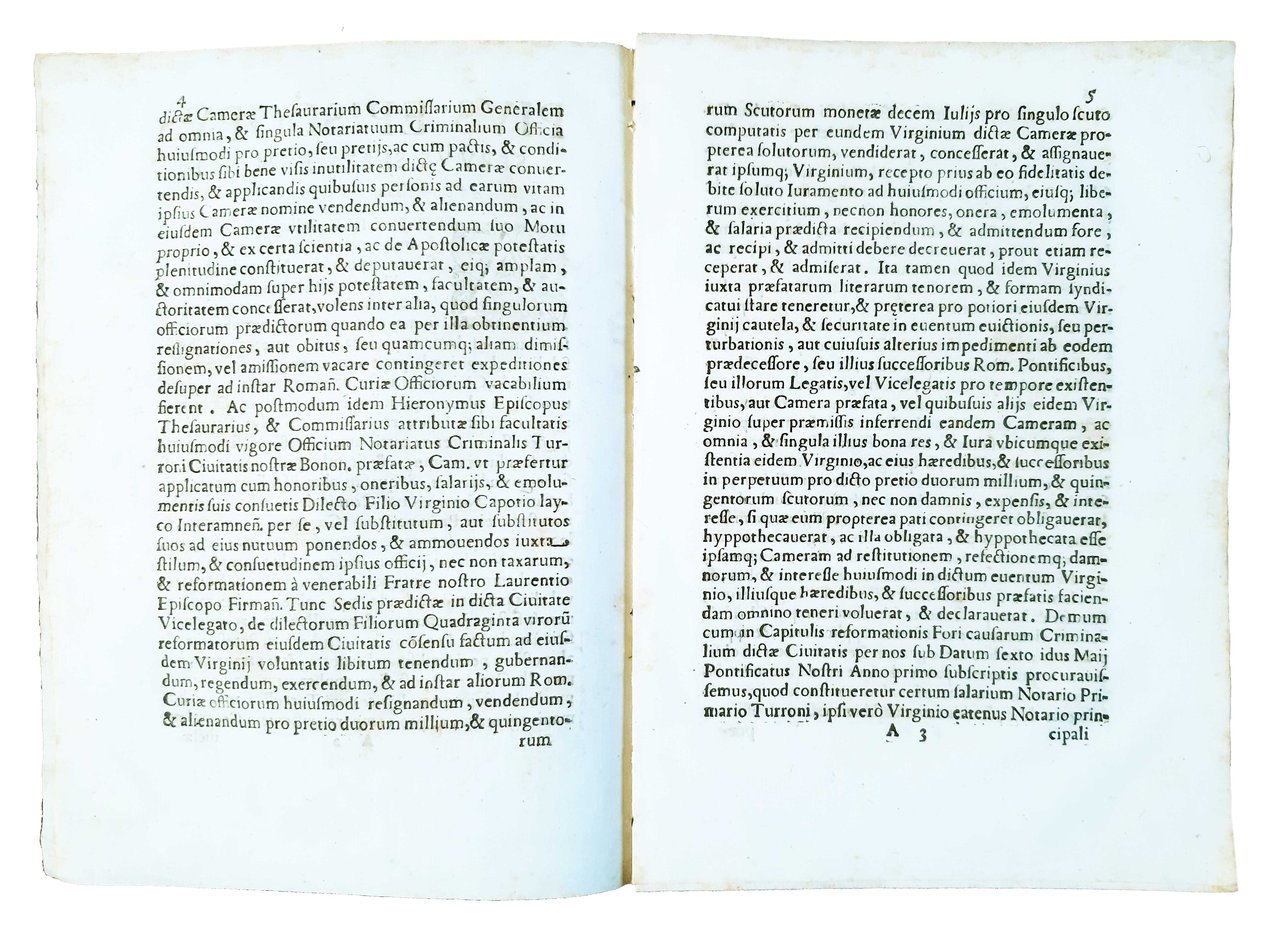 4
dictæ Cameræ Theſaurarium Commiſſarium Generalem
ad omnia, & ſingula Notariatuum Criminalium Officia
huiuſmodi pro pretio, ſeu pretijs, ac cum pactis, & condi-
tionibus ſibi bene viſis inutilitatem dictę Cameræ conuer-
tendis, & applicandis quibuſuis perſonis ad earum vitam
ipſius Cameræ nomine vendendum, & alienandum, ac in
eiuſdem Cameræ vtilitatem conuertendum ſuo Motu
proprio, & ex certa ſcientia, ac de Apoſtolicæ poteſtatis
plenitudine conſtituerat, & deputauerat, eiq; amplam,
& omnimodam ſuper hijs poteſtatem, facultatem, & au-
ctoritatem conceſſerat, volens inter alia, quod ſingulorum
officiorum prædictorum quando ea per illa obtinentium
reſignationes, aut obitus, ſeu quamcumq; aliam dimiſ-
ſionem, vel amiſſionem vacare contingeret expeditiones
deſuper ad inſtar Romañ. Curiæ Officiorum vacabilium
fierent. Ac poſtmodum idem Hieronymus Epiſcopus
Theſaurarius, & Commiſſarius attributæ ſibi facultatis
huiuſmodi vigore Officium Notariatus Criminalis Tur-
roni Ciuitatis noſtræ Bonon. præfatæ, Cam. vt præfertur
applicatum cum honoribus, oneribus, ſalarijs, & emolu-
mentis ſuis conſuetis Dilecto Filio Virginio Capotio lay-
co Interamneñ. per ſe, vel ſubſtitutum, aut ſubſtitutos
ſuos ad eius nutuum ponendos, & ammouendos iuxta
ſtilum, & conſuetudinem ipſius officij, nec non taxarum,
& reformationem à venerabili Fratre noſtro Laurentio
Epiſcopo Firmañ. Tunc Sedis prædictæ in dicta Ciuitate
Vicelegato, de dilectorum Filiorum Quadraginta virorũ
reformatorum eiuſdem Ciuitatis cõſenſu factum ad eiuſ-
dem Virginij voluntatis libitum tenendum, gubernan-
dum, regendum, exercendum, & ad inſtar aliorum Rom.
Curiæ officiorum huiuſmodi reſignandum, vendendum,
& alienandum pro pretio duorum millium, & quingento-
rum
5
rum Scutorum monetæ decem Iulijs pro ſingulo ſcuto
computatis per eundem Virginium dictæ Cameræ pro-
pterea ſolutorum, vendiderat, conceſſerat, & aſſignaue-
rat ipſumq; Virginium, recepto prius ab eo fidelitatis de-
bite ſoluto Iuramento ad huiuſmodi officium, eiuſq; libe-
rum exercitium, necnon honores, onera, emolumenta,
& ſalaria prædicta recipiendum, & admittendum fore,
ac recipi, & admitti debere decreuerat, prout etiam re-
ceperat, & admiſerat. Ita tamen quod idem Virginius
iuxta præfatarum literarum tenorem, & formam ſyndi-
catui ſtare teneretur, & pręterea pro potiori eiuſdem Vir-
ginij cautela, & ſecuritate in euentum euictionis, ſeu per-
turbationis, aut cuiuſuis alterius impedimenti ab eodem
prædeceſſore, ſeu illius ſucceſſoribus Rom. Pontificibus,
ſeu illorum Legatis, vel Vicelegatis pro tempore exiſten-
tibus, aut Camera præfata, vel quibuſuis alijs eidem Vir-
ginio ſuper præmiſſis inferrendi eandem Cameram, ac
omnia, & ſingula illius bona res, & Iura vbicumque exi-
ſtentia eidem Virginio, ac eius hæredibus, & ſucceſſoribus
in perpetuum pro dicto pretio duorum millium, & quin-
gentorum ſcutorum, nec non damnis, expenſis, & inte-
reſſe, ſi quæ eum propterea pati contingeret obligauerat,
hyppothecauerat, ac illa obligata, & hyppothecata eſſe
ipſamq; Cameram ad reſtitutionem, refectionemq; dam-
norum, & intereſſe huiuſmodi in dictum euentum Virgi-
nio, illiuſque hæredibus, & ſucceſſoribus præfatis facien-
dam omnino teneri voluerat, & declarauerat. Demum
cum in Capitulis reformationis Fori cauſarum Crimina-
lium dictæ Ciuitatis per nos ſub Datum ſexto idus Maij
Pontificatus Noſtri Anno primo ſubſcriptis procurauiſ-
ſemus, quod conſtitueretur certum ſalarium Notario Pri-
mario Turroni, ipſi verò Virginio eatenus Notario prin-
A 3 cipali